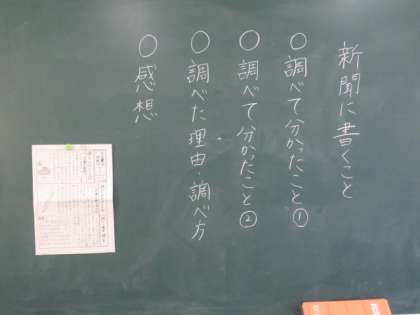 新聞に書くこと
○調べて分かったこと①
○調べて分かったこと②
○調べた理由・調べ方
○感想